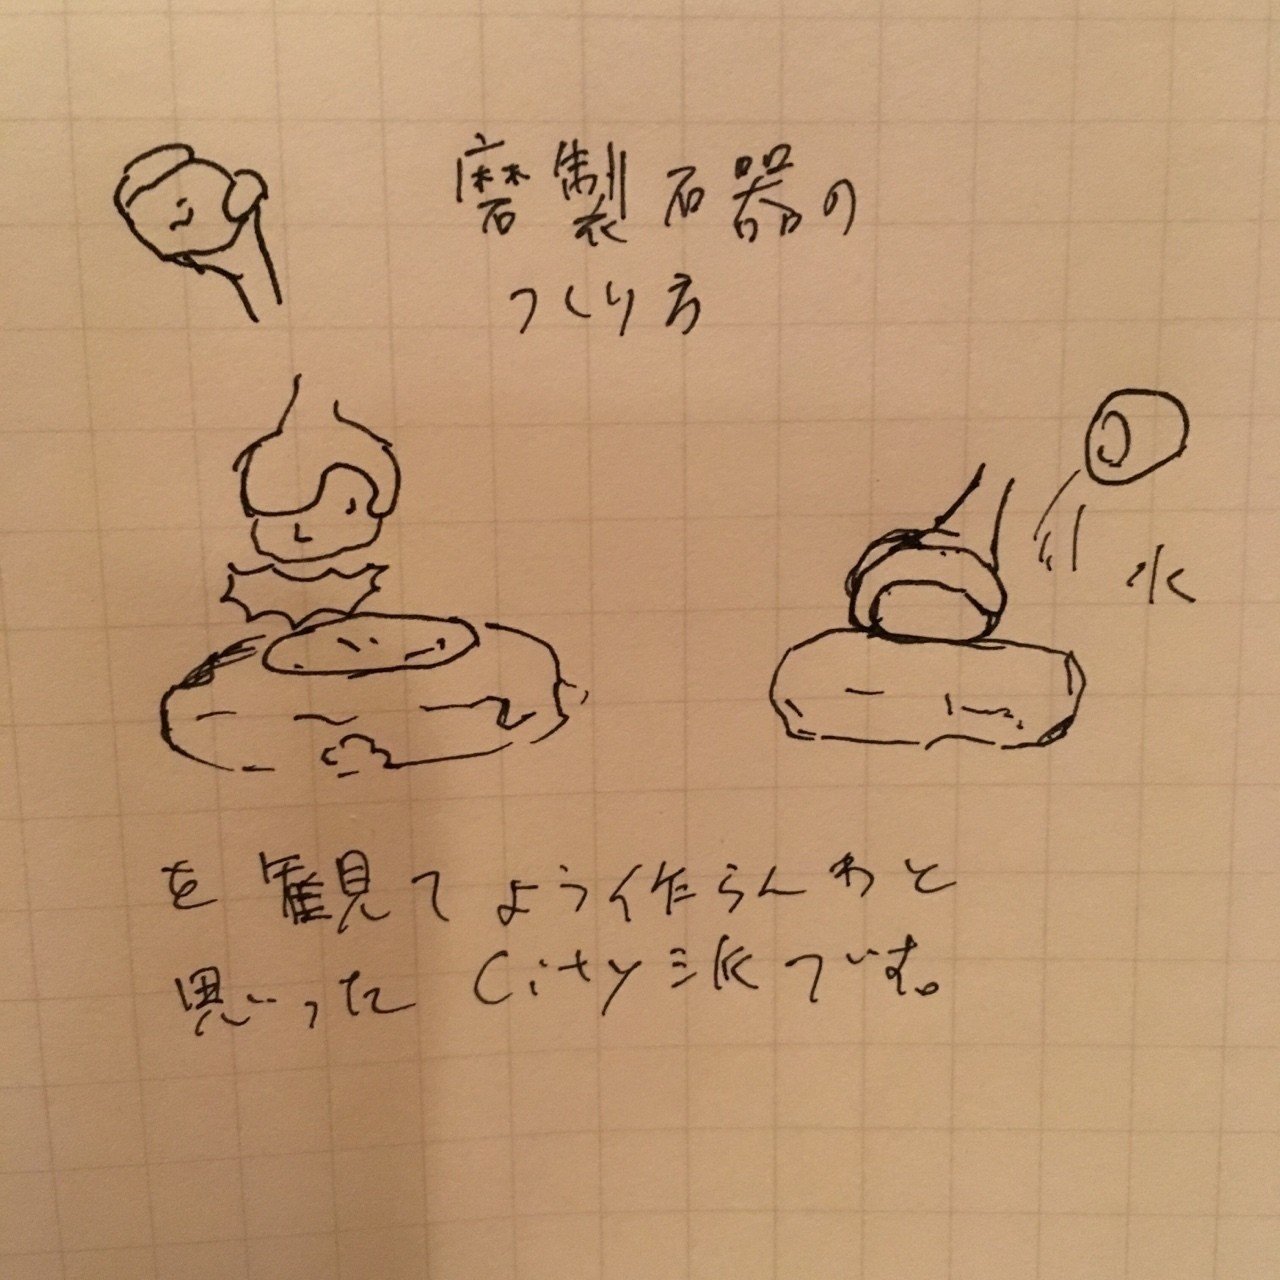 磨製石器の
つくり方
水
を観てよう作らんわと
思った City派です。